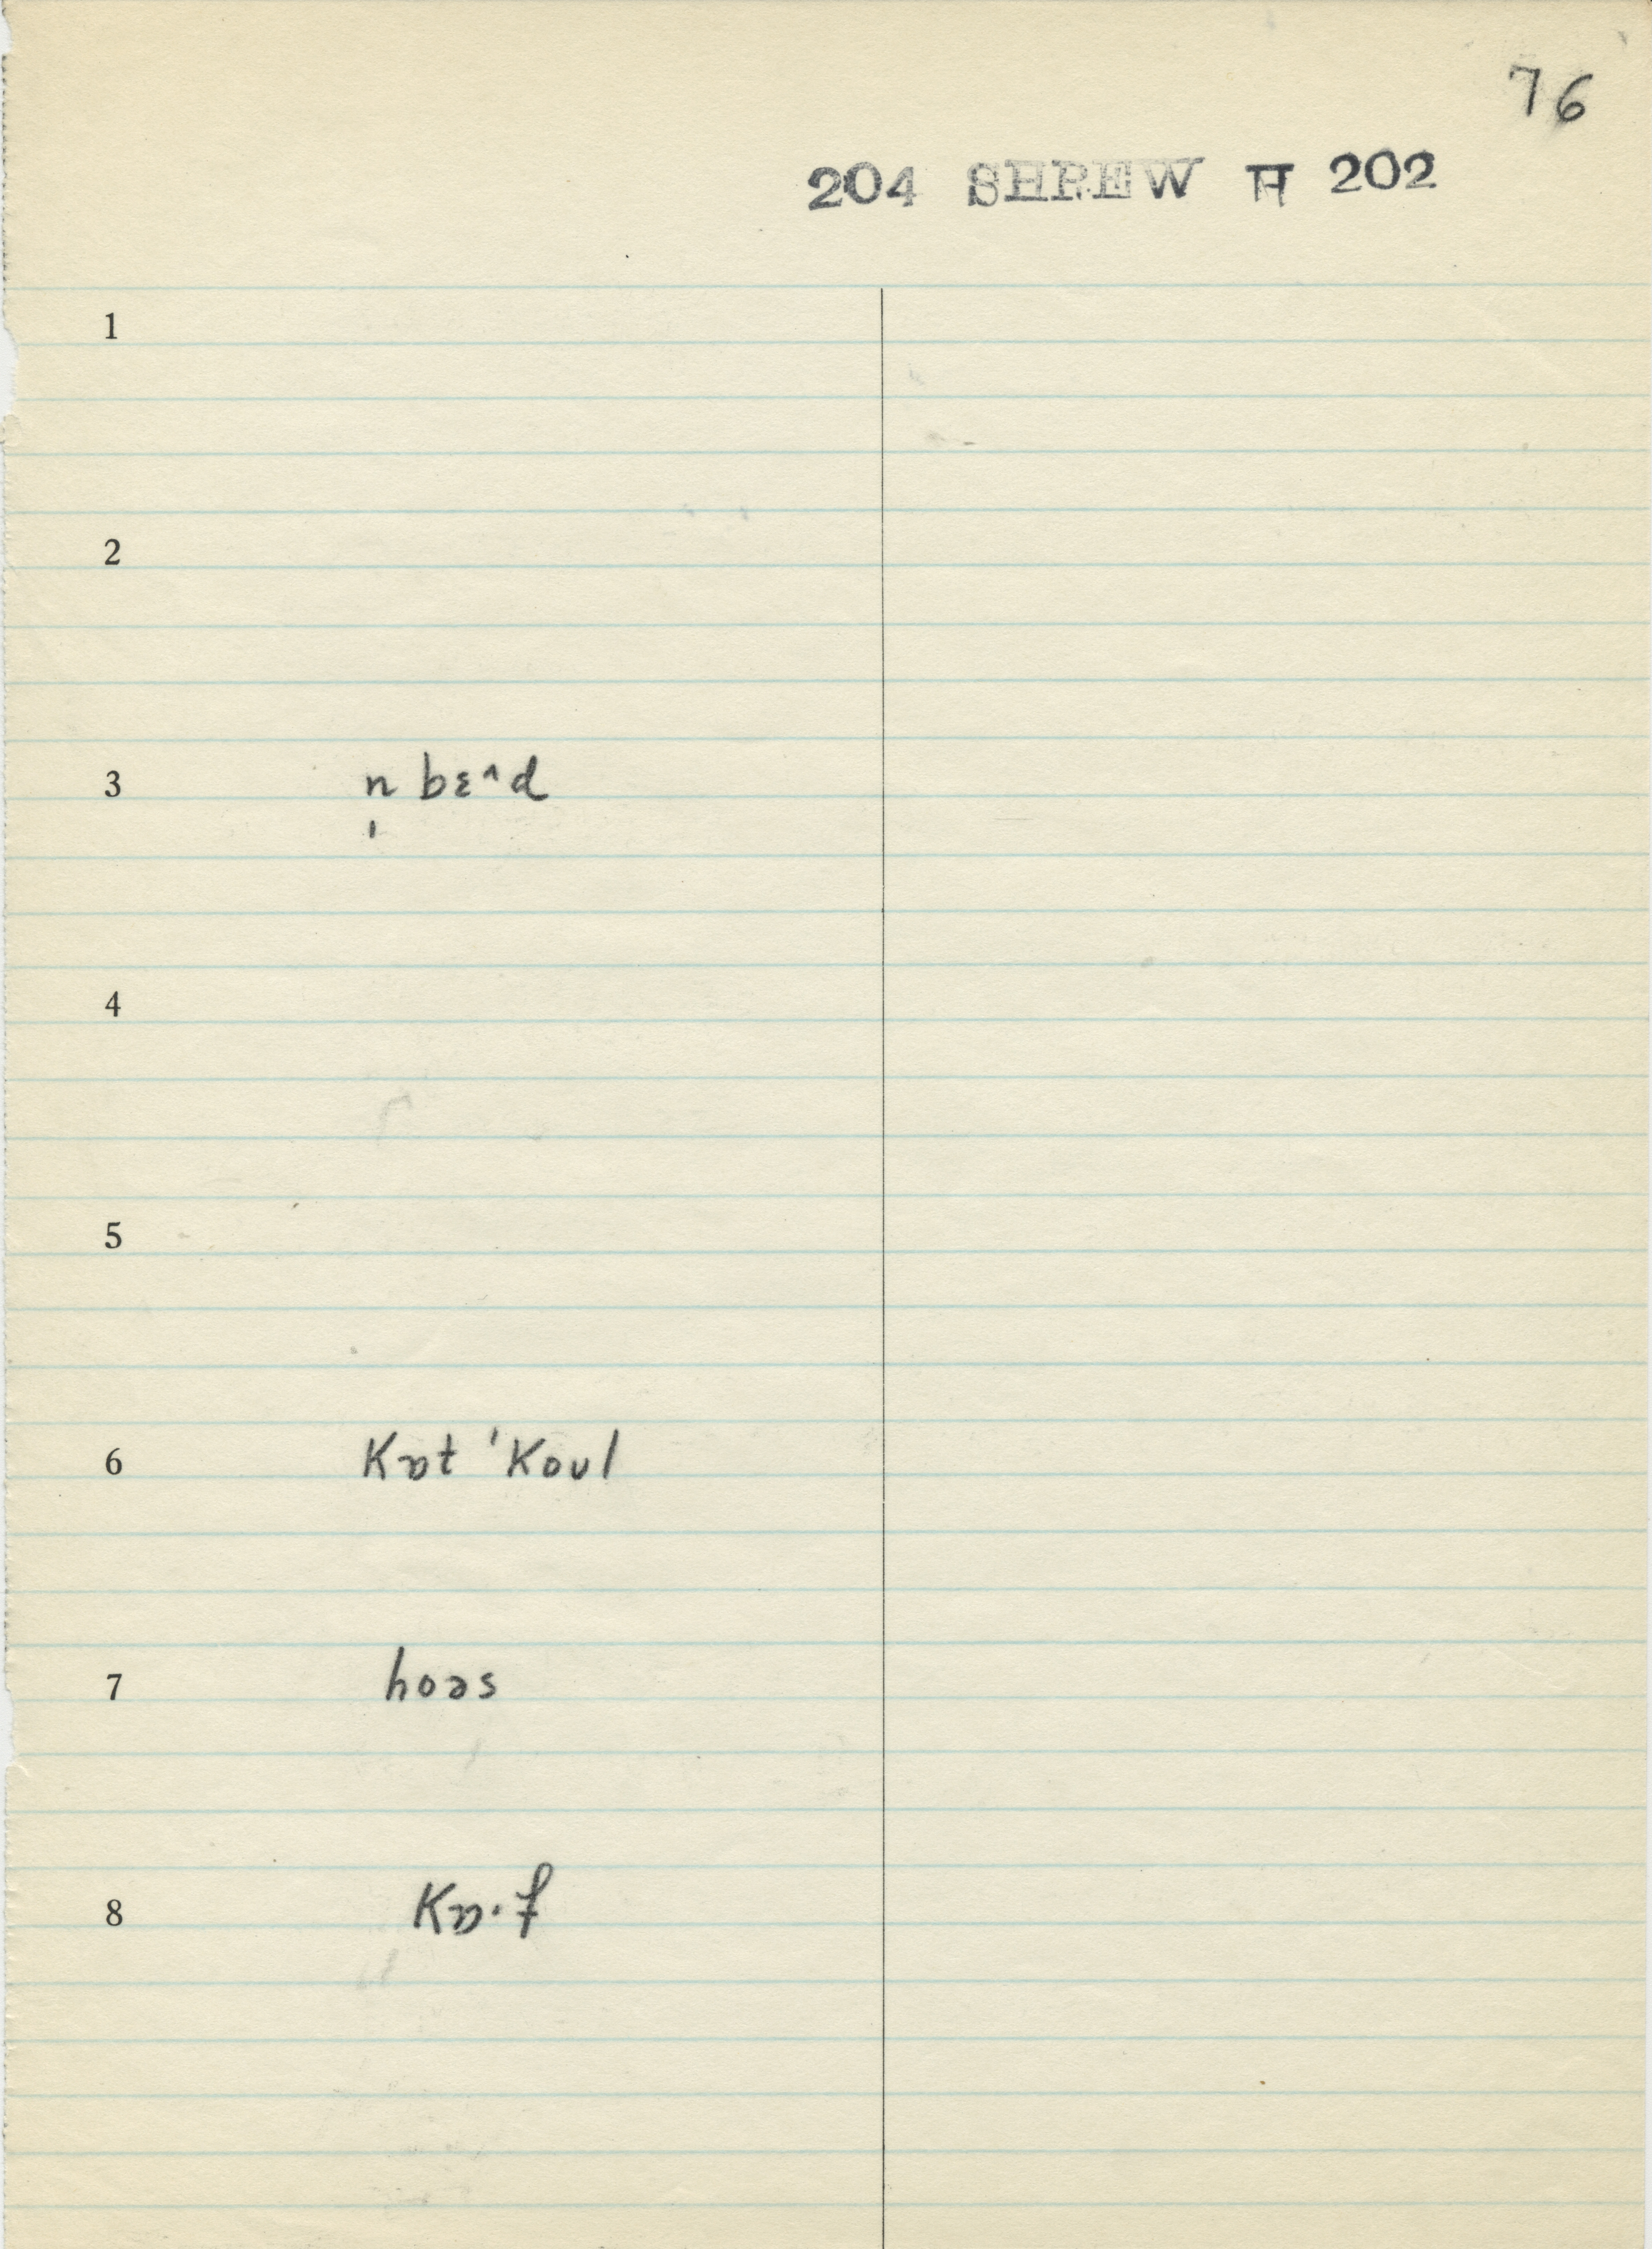 76
204 SHREW H 202
1
2
3 n̩ bɛ^d
4
5
6 kɒt 'koul
7 hoəs
8 kɒ·f